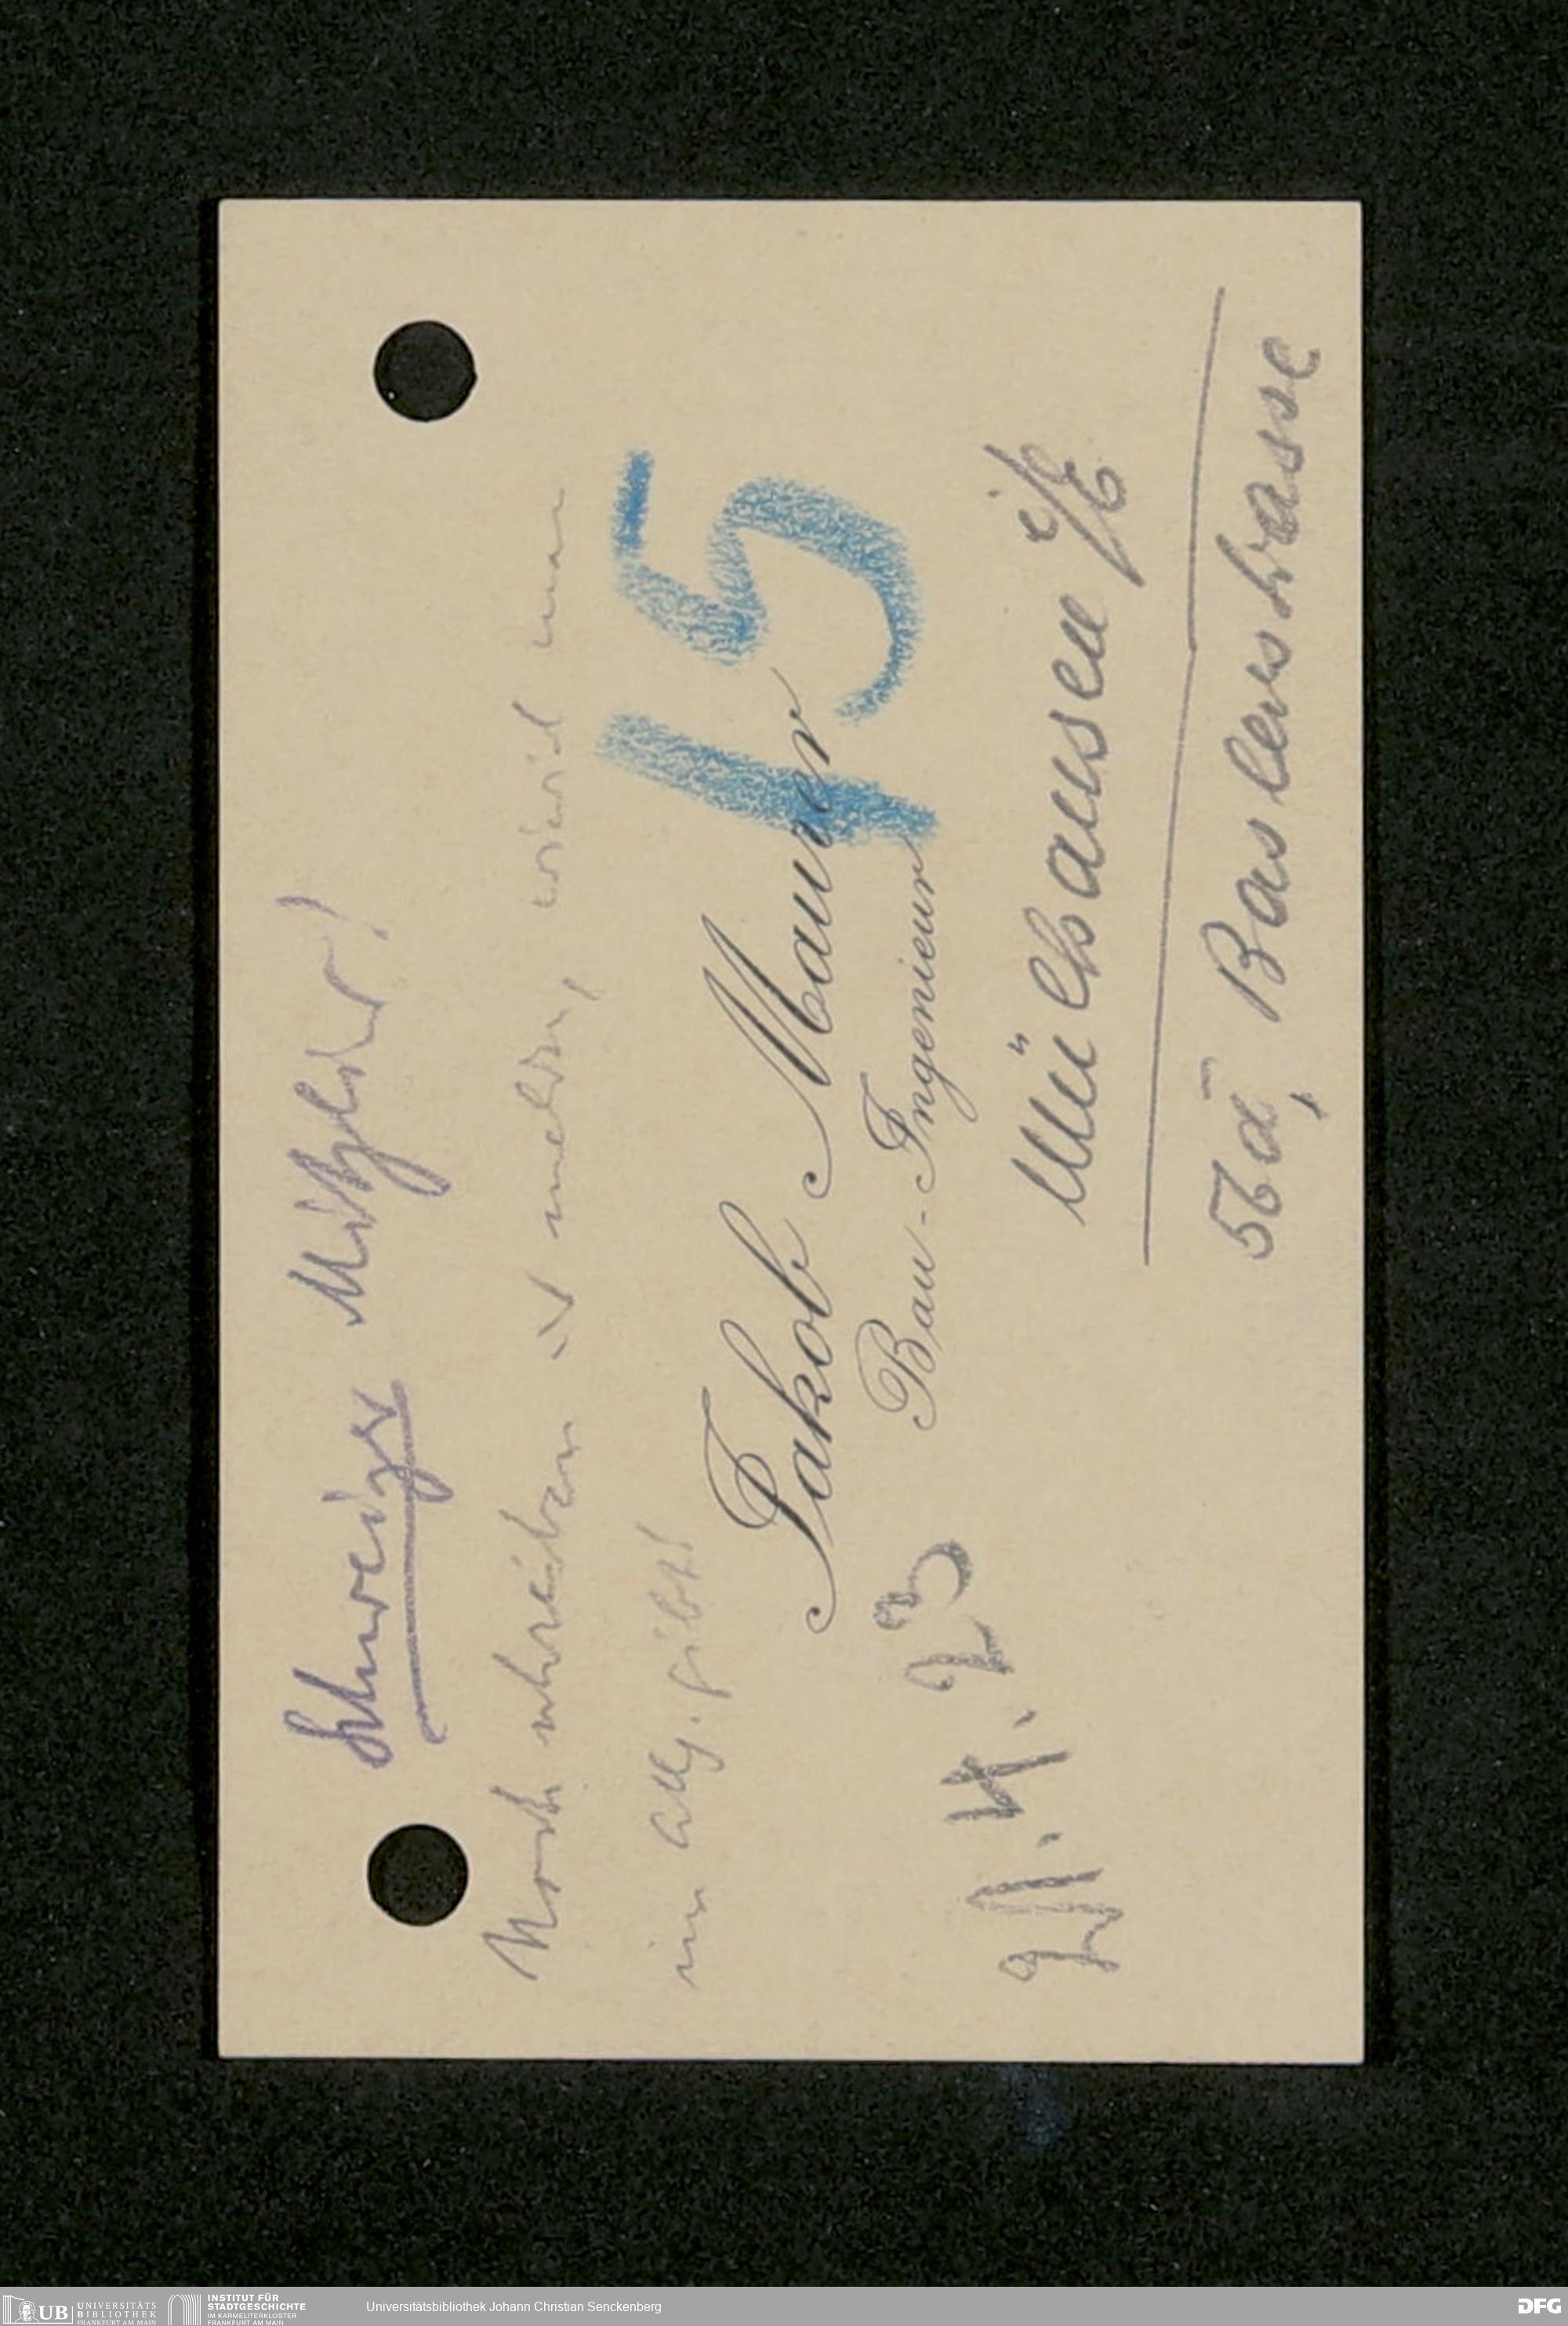 Schweizer Mitglied!
Noch schreiben u melden, wieviel man
im Allg. gibt!
15
Jakob Maurer
Bau-Ingenieur
21.4.23
Mülhausen i/E
56a, Baslerstrasse
UB UNIVERSITÄTS
BIBLIOTHEK
FRANKFURT AM MAIN
INSTITUT FÜR
STADTGESCHICHTE
IM KARMELITERKLOSTER
FRANKFURT AM MAIN
Universitätsbibliothek Johann Christian Senckenberg
DFG